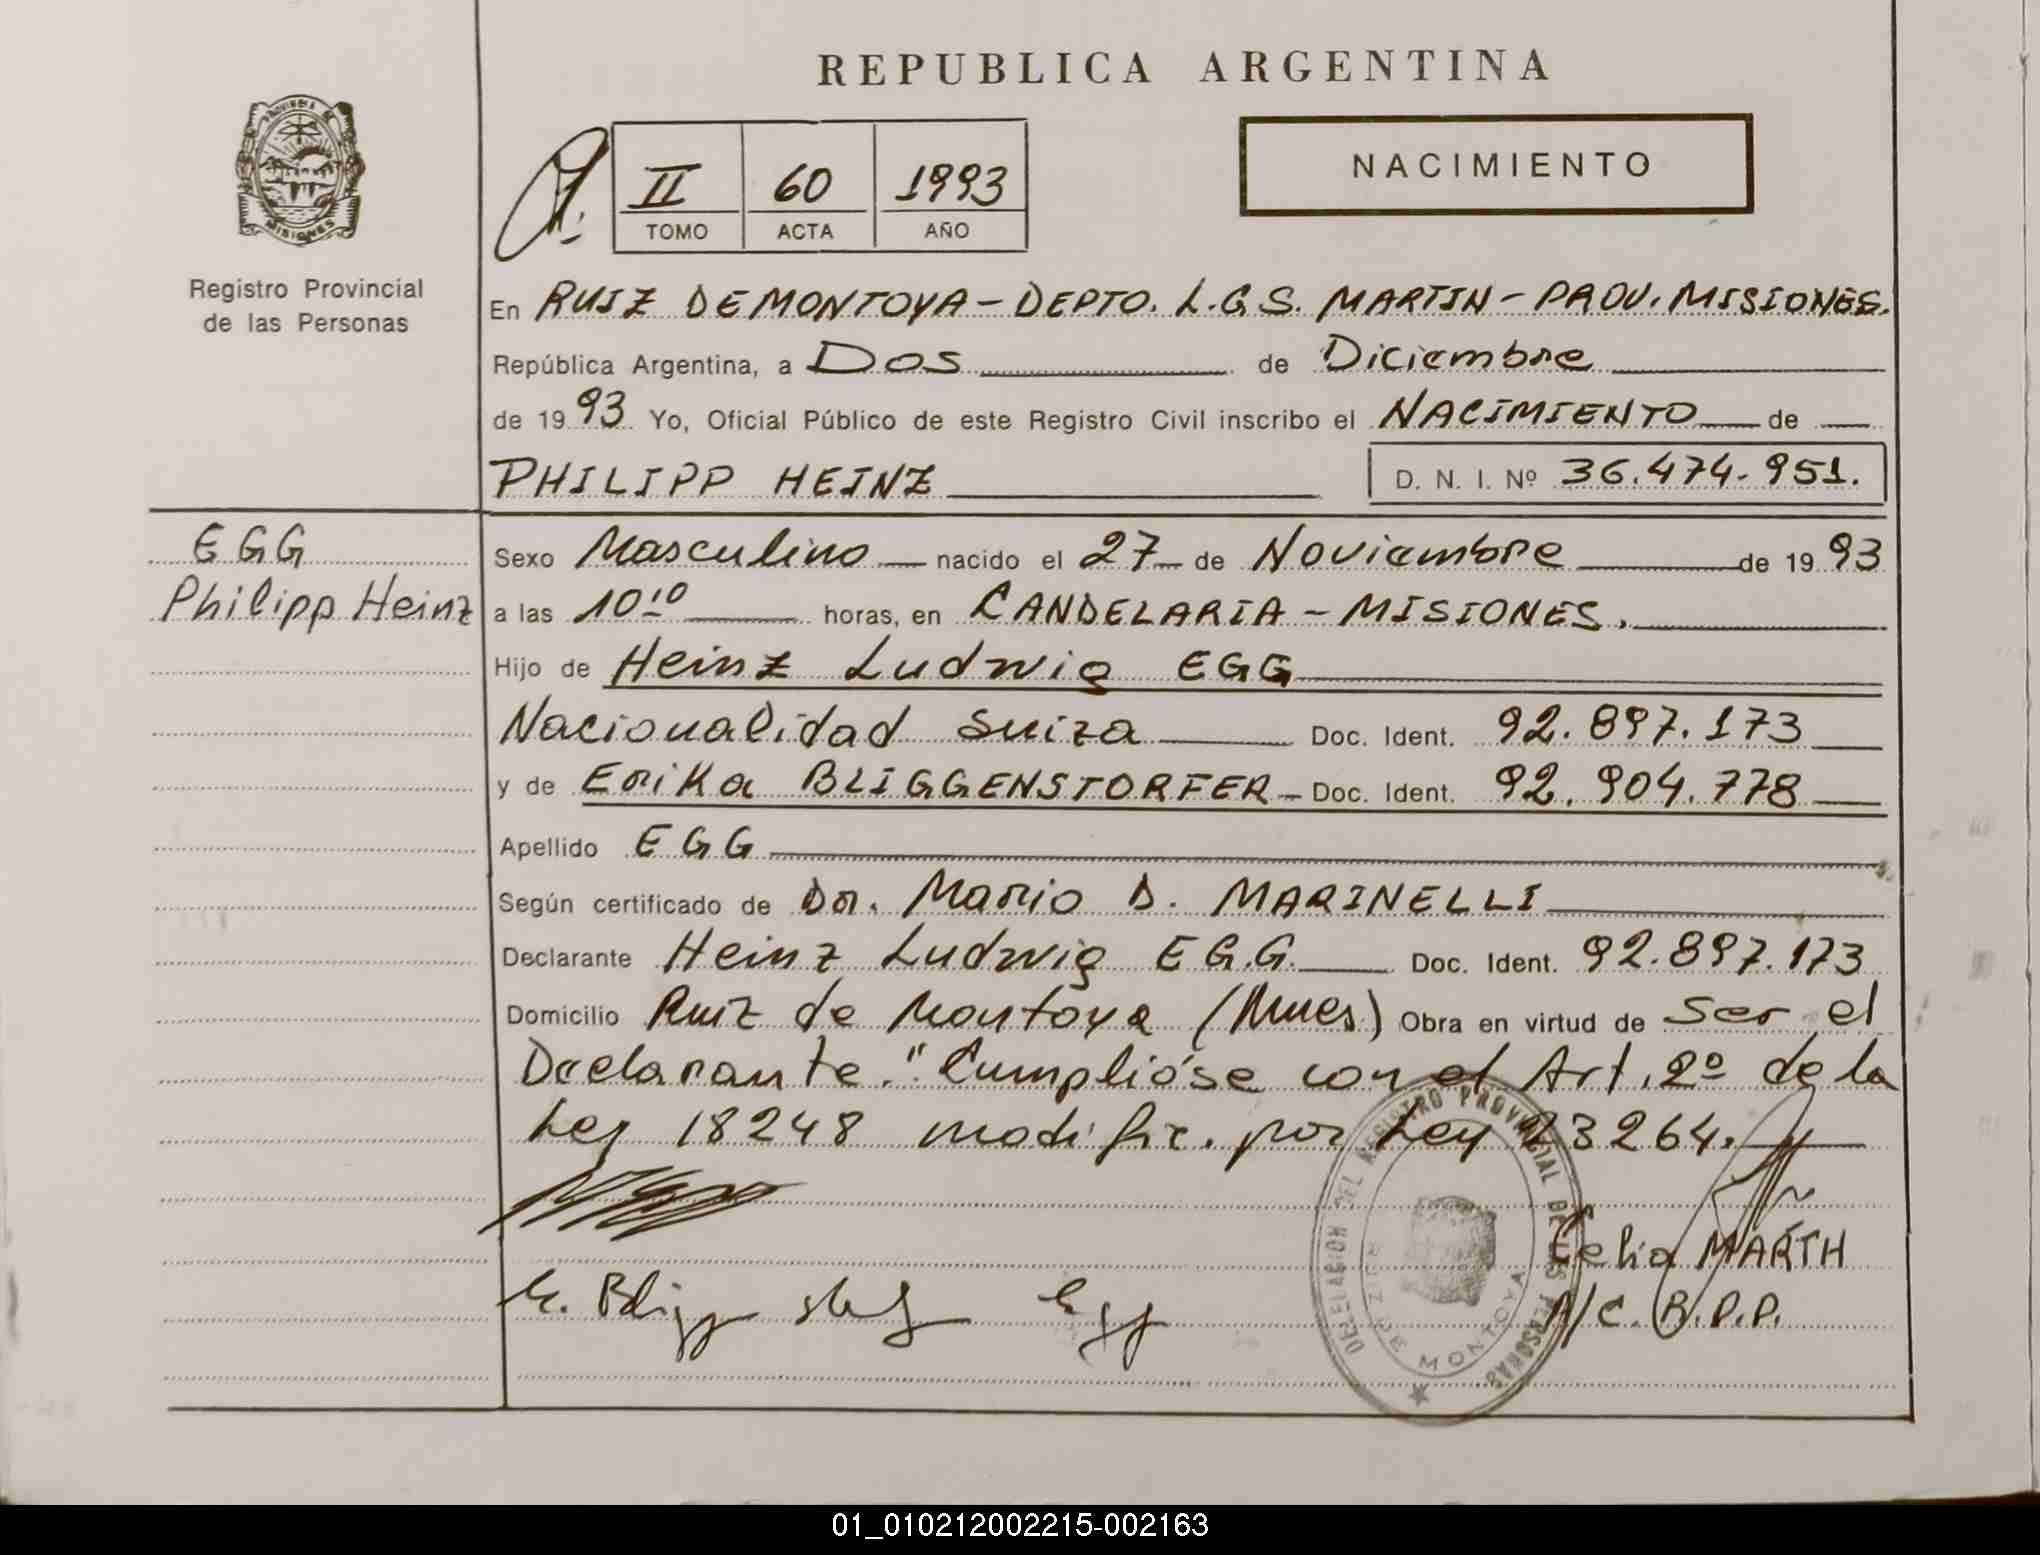 REPUBLICA ARGENTINA
PROVINCIA DE
MISIONES
Registro Provincial
de las Personas
II 60 1993
TOMO ACTA AÑO
NACIMIENTO
En RUIZ DE MONTOYA - DEPTO. L.G.S. MARTIN - PROV. MISIONES.
República Argentina, a Dos de Diciembre
de 1993 Yo, Oficial Público de este Registro Civil inscribo el NACIMIENTO de
PHILIPP HEINZ D. N. I. Nº 36.474.951.
EGG
Philipp Heinz
Sexo Masculino nacido el 27 de Noviembre de 1993
a las 10:10 horas, en CANDELARIA - MISIONES.
Hijo de Heinz Ludwig EGG
Nacionalidad Suiza Doc. Ident. 92.897.173
y de Erika BLIGGENSTORFER - Doc. Ident. 92.904.778
Apellido EGG
Según certificado de Dr. Mario D. MARINELLI
Declarante Heinz Ludwig EGG. Doc. Ident. 92.897.173
Domicilio Ruiz de Montoya (Mnes) Obra en virtud de ser el
Declarante. "Cumplióse con el Art. 2º de la
Ley 18248 modific. por Ley 23264.
DELEGACION DEL REGISTRO PROVINCIAL DE LAS PERSONAS
RUIZ DE MONTOYA
Celia MARTH
A/C. R.P.P.
E. Bliggenstorfer Egg
01_010212002215-002163